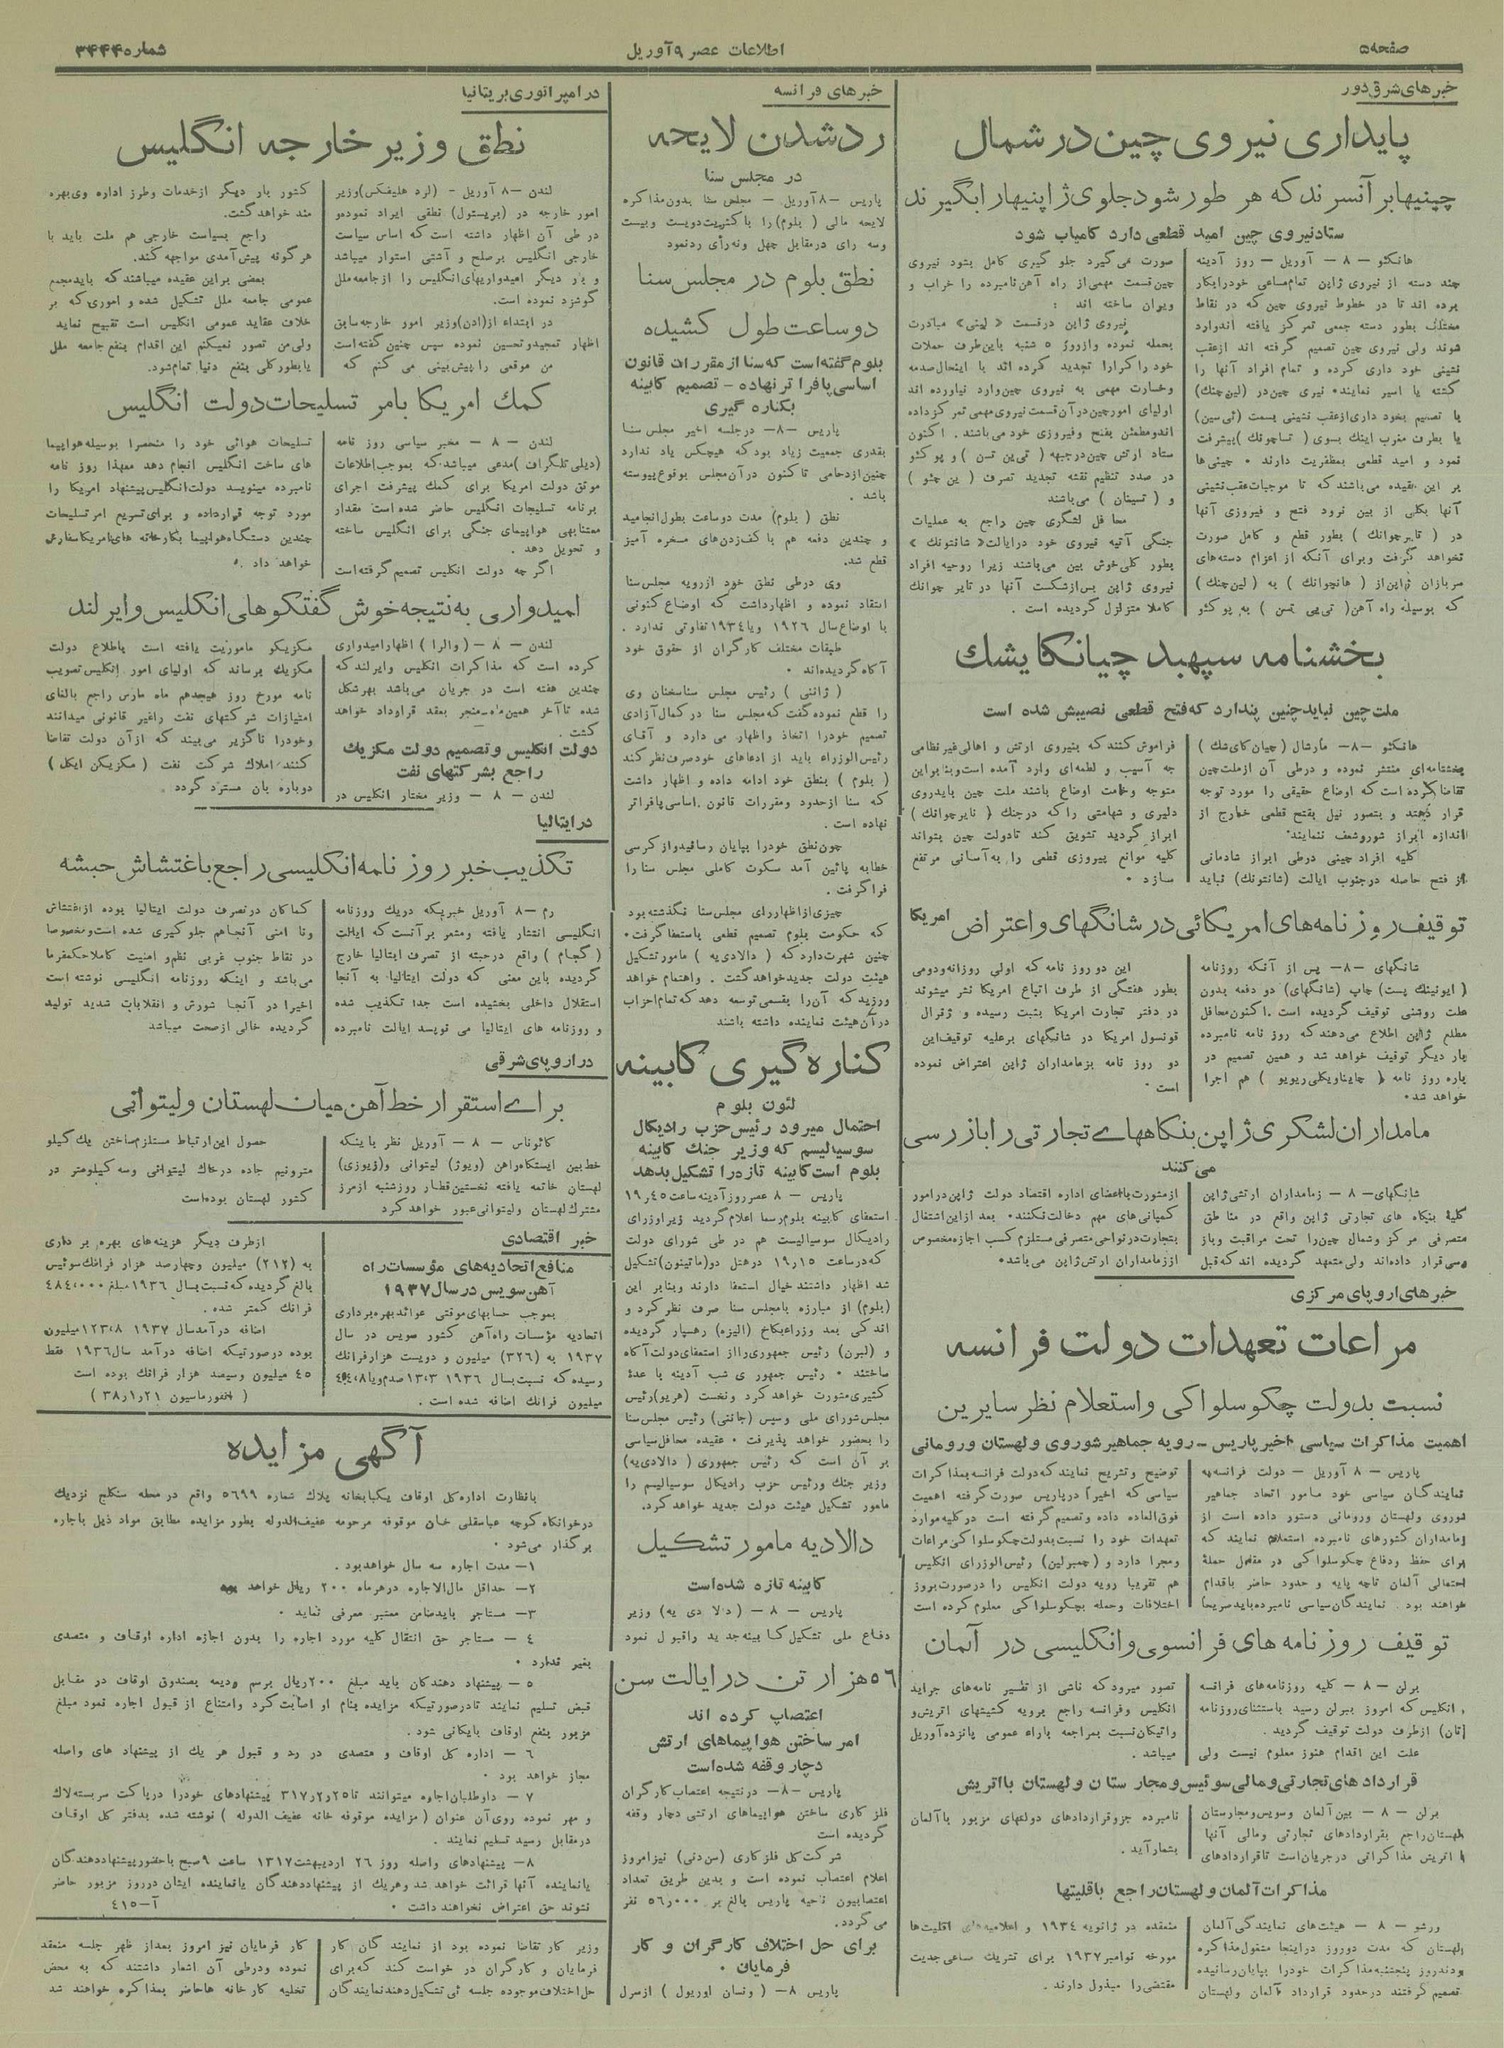 صفحه۵
اطلاعات عصر ۹ آوریل
شماره ۳۴۴۴
خبرهای شرق دور
پایداری نیروی چین در شمال
چینیها برآنسرند که هر طور شود جلوی ژاپنیها را بگیرند
ستاد نیروی چین امید قطعی دارد کامیاب شود
هانکئو –۸– آوریل – روز آدینه
چند دسته از نیروی ژاپن تمام مساعی خود را بکار
برده اند تا در خطوط نیروی چین که در نقاط
مختلف بطور دسته جمعی تمرکز یافته اند وارد
شوند ولی نیروی چین تصمیم گرفته اند از عقب
نشینی خود داری کرده و تمام افراد آنها را
کشته یا اسیر نمایند
صورت می گیرد جلو گیری کامل بشود نیروی
چین قسمت مهمی از راه آهن نامبرده را خراب و
ویران ساخته اند :
بخشنامه سپهبد چیانکایشك
ملت چین نباید چنین پندارد که فتح قطعی نصیبش شده است
هانکئو –۸– مارشال ( چیان کای شك )
بخشنامه‌ای منتشر نموده و درطی آن از ملت چین
تقاضا کرده است که اوضاع حقیقی را مورد توجه
قرار دهند و بتصور نیل بفتح قطعی خارج از
اندازه ابراز شور و شعف ننمایند
کلیه افراد چینی درطی ابراز شادمانی
از فتح حاصله در جنوب ایالت (شانتونك) نباید
فراموش کنند که بنیروی ارتش و اهالی غیر نظامی
چه آسیب و لطمه‌ای وارد آمده است و بنا براین
متوجه وخامت اوضاع باشند ملت چین باید روی
دلیری و شهامتی را که در جنك ( تایرچوانك )
ابراز گردید تشویق کند تا دولت چین بتواند
کلیه موانع پیروزی قطعی را به آسانی مرتفع
سازد .
توقیف روزنامه های امریکائی در شانگهای و اعتراض امریکا
شانگهای –۸– پس از آنکه روزنامه
( ایونینك پست) چاپ (شانگهای) دو دفعه بدون
علت روشنی توقیف گردیده است . اکنون محافل
مطلع ژاپن اطلاع میدهند که روز نامه نامبرده
بار دیگر توقیف خواهد شد و همین تصمیم در
باره روز نامه ( چایناویکلی ریویو ) هم اجرا
خواهد شد.
این دو روز نامه که اولی روزانه و دومی
بطور هفتگی از طرف اتباع امریکا نشر میشوند
در دفتر تجارت امریکا بثبت رسیده و ژنرال
قونسول امریکا در شانگهای برعلیه توقیف این
دو روز نامه بزمامداران ژاپن اعتراض نموده
است
مامداران لشکری ژاپن بنکاههای تجارتی را بازرسی
می کنند
شانگهای – ۸ – زمامداران ارتشی ژاپن
کلیهٔ بنگاه های تجارتی ژاپن واقع در مناطق
متصرفی مرکز و شمال چین را تحت مراقبت و باز
رسی قرار داده‌اند ولی متعهد گردیده اند که قبل
از مشورت با اعضای اداره اقتصاد دولت ژاپن در امور
کمپانی های مهم دخالت نکنند. بعد از این اشتغال
بتجارت در نواحی متصرفی مستلزم کسب اجازه مخصوص
از زمامداران ارتش ژاپن می باشد.
خبرهای اروپای مرکزی
مراعات تعهدات دولت فرانسه
نسبت بدولت چکوسلواکی و استعلام نظر سایرین
اهمیت مذاکرات سیاسی اخیر پاریس – رویه جماهیر شوروی و لهستان و رومانی
پاریس – ۸ آوریل – دولت فرانسه به
نمایندگان سیاسی خود مامور اتحاد جماهیر
شوروی و لهستان و رومانی دستور داده است از
زمامداران کشورهای نامبرده استعلام نمایند که
برای حفظ و دفاع چکوسلواکی در مقابل حملهٔ
احتمالی آلمان تا چه پایه و حدود حاضر باقدام
خواهند بود . نمایندگان سیاسی نامبرده باید صریحاً
توضیح و تشریح نمایند که دولت فرانسه بمذاکرات
سیاسی که اخیراً در پاریس صورت گرفته اهمیت
فوق العاده داده و تصمیم گرفته است در کلیه موارد
تعهدات خود را نسبت بدولت چکوسلواکی مراعات
و مجرا دارد و ( چمبرلین ) رئیس الوزرای انگلیس
هم تقریبا رویه دولت انگلیس را در صورت بروز
اختلافات و حمله بچکوسلواکی معلوم کرده است
توقیف روزنامه های فرانسوی و انگلیسی در آلمان
برلن – ۸ – کلیه روزنامه‌های فرانسه
و انگلیس که امروز ببرلن رسید باستثنای روزنامه
(تان) از طرف دولت توقیف گردید .
علت این اقدام هنوز معلوم نیست ولی
تصور میرود که ناشی از تفسیر نامه‌های جراید
انگلیس و فرانسه راجع برویه کشیشهای اتریش و
واتیکان نسبت بمراجعه بآراء عمومی پانزده آوریل
میباشد .
قراردادهای تجارتی و مالی سوئیس و مجارستان و لهستان با اتریش
برلن – ۸ – بین آلمان و سویس و مجارستان
لهستان راجع بقراردادهای تجارتی و مالی آنها
با اتریش مذاکراتی در جریان است تا قراردادهای
نامبرده جزو قراردادهای دولتهای مزبور با آلمان
بشمار آید .
مذاکرات آلمان و لهستان راجع باقلیتها
ورشو – ۸ – هیئت‌های نمایندگی آلمان
لهستان که مدت دو روز در اینجا مشغول مذاکره
بودند روز پنجشنبه مذاکرات خود را بپایان رسانیده
تصمیم گرفتند در حدود قرارداد آلمان و لهستان
منعقده در ژانویه ۱۹۳۴ و اعلامیه های اقلیت‌ها
مورخه نوامبر ۱۹۳۷ برای تشریك مساعی جدیت
مقتضی را مبذول دارند .
خبرهای فرانسه
رد شدن لایحه
در مجلس سنا
پاریس –۸ آوریل – مجلس سنا بدون مذاکره
لایحه مالی ( بلوم) را با کثریت دویست و بیست
و سه رای در مقابل چهل و نه رأی رد نمود
نطق بلوم در مجلس سنا
دو ساعت طول کشیده
بلوم گفته است که سنا از مقررات قانون
اساسی پا فراتر نهاده – تصمیم کابینه
بکناره گیری
پاریس –۸– در جلسه اخیر مجلس سنا
بقدری جمعیت زیاد بود که هیچکس یاد ندارد
چنین ازدحامی تا کنون در آن مجلس بوقوع پیوسته
باشد .
نطق ( بلوم) مدت دو ساعت بطول انجامید
و چندین دفعه هم با کف‌زدن‌های مسخره آمیز
قطع شد.
وی درطی نطق خود از رویه مجلس سنا
انتقاد نموده و اظهار داشت که اوضاع کنونی
با اوضاع سال ۱۹۲۶ و یا ۱۹۳۴ تفاوتی ندارد .
طبقات مختلف کارگران از حقوق خود
آگاه گردیده‌اند .
( ژاننی ) رئیس مجلس سنا سخنان وی
را قطع نموده گفت که مجلس سنا در کمال آزادی
تصمیم خود را اتخاذ و اظهار می دارد و آقای
رئیس الوزراء باید از ادعاهای خود صرف نظر کند
( بلوم ) بنطق خود ادامه داده و اظهار داشت
که سنا از حدود و مقررات قانون اساسی پافراتر
نهاده است .
چون نطق خود را بپایان رسانید و از کرسی
خطابه پائین آمد سکوت کاملی مجلس سنا را
فرا گرفت .
چیزی از اظهار رای مجلس سنا نگذشته بود
که حکومت بلوم تصمیم قطعی باستعفا گرفت .
چنین شهرت دارد که ( دالادیه ) مامور تشکیل
هیئت دولت جدید خواهد گشت . و اهتمام خواهد
ورزید که آن را بقسمی توسعه دهد که تمام احزاب
در آن هیئت نماینده داشته باشند
کناره گیری کابینه
لئون بلوم
احتمال میرود رئیس حزب رادیکال
سوسیالیسم که وزیر جنك کابینه
بلوم است کابینه تازه را تشکیل بدهد
پاریس – ۸ عصر روز آدینه ساعت ۱۹٫۴۵
استعفای کابینه بلوم رسما اعلام گردید زیرا وزرای
رادیکال سوسیالیست هم در طی شورای دولت
که در ساعت ۱۹٫۱۵ در هتل دو (ماتینون) تشکیل
شد اظهار داشتند خیال استعفا دارند و بنابر این
(بلوم) از مبارزه با مجلس سنا صرف نظر کرد و
اند کی بعد وزراء بکاخ (الیزه) رهسپار گردیده
و (لبرن) رئیس جمهوری را از استعفای دولت آگاه
ساختند . رئیس جمهوری شب آدینه با عدهٔ
کثیری مشورت خواهد کرد و نخست (هریو) رئیس
مجلس شورای ملی و سپس (جانتی) رئیس مجلس سنا
را بحضور خواهد پذیرفت . عقیده محافل سیاسی
بر آن است که رئیس جمهوری ( دالادی‌یه)
وزیر جنك و رئیس حزب رادیکال سوسیالیسم را
مامور تشکیل هیئت دولت جدید خواهد کرد.
دالادیه مامور تشکیل
کابینه تازه شده است
پاریس – ۸ – ( دلا دی یه) وزیر
دفاع ملی تشکیل کابینه جدید را قبول نمود
۵۶ هزار تن در ایالت سن
اعتصاب کرده اند
امر ساختن هواپیماهای ارتش
دچار وقفه شده است
پاریس –۸– در نتیجه اعتصاب کارگران
فلز کاری ساختن هواپیماهای ارتشی دچار وقفه
گردیده است
شرکت کل فلز کاری (سن‌دنی) نیز امروز
اعلام اعتصاب نموده است و بدین طریق تعداد
اعتصابیون ناحیه پاریس بالغ بر ۵۶٫۰۰۰ نفر
می گردد.
برای حل اختلاف کارگران و کار
فرمایان .
پاریس ۸– ( ونسان اوریول ) از سرل
وزیر کار تقاضا نموده بود از نمایند گان کار
فرمایان و کارگران در خواست کند که برای
حل اختلاف موجوده جلسه ئی تشکیل دهند نمایندگان
کار فرمایان نیز امروز بعد از ظهر جلسه منعقد
نموده و درطی آن اشعار داشتند که به محض
تخلیه کارخانه ها حاضر بمذاکره خواهند شد
در امپراتوری بریتانیا
نطق وزیر خارجه انگلیس
لندن –۸ آوریل – (لرد هلیفکس) وزیر
امور خارجه در (بریستول) نطقی ایراد نموده و
در طی آن اظهار داشته است که اساس سیاست
خارجی انگلیس بر صلح و آشتی استوار میباشد
و بار دیگر امیدواریهای انگلیس را از جامعه ملل
گوشزد نموده است.
در ابتداء از (ادن) وزیر امور خارجه سابق
اظهار تمجید و تحسین نموده سپس چنین گفته است
من موقعی را پیش بینی می کنم که
کشور بار دیگر از خدمات و طرز اداره وی بهره
مند خواهد گشت.
راجع بسیاست خارجی هم ملت باید با
هر گونه پیش آمدی مواجهه کند.
بعضی براین عقیده میباشند که باید مجمع
عمومی جامعه ملل تشکیل شده و اموری که بر
خلاف عقاید عمومی انگلیس است تقبیح نماید
ولی من تصور نمیکنم این اقدام بنفع جامعه ملل
یا بطور کلی بنفع دنیا تمام شود.
کمك امریکا بامر تسلیحات دولت انگلیس
لندن – ۸ – مخبر سیاسی روز نامه
(دیلی تلگراف) مدعی میباشد که بموجب اطلاعات
موثق دولت امریکا برای کمك پیشرفت اجرای
برنامه تسلیحات انگلیس حاضر شده است مقدار
معتنابهی هواپیمای جنگی برای انگلیس ساخته
و تحویل دهد .
اگر چه دولت انگلیس تصمیم گرفته است
تسلیحات هوائی خود را منحصرا بوسیله هواپیما
های ساخت انگلیس انجام دهد معهذا روز نامه
نامبرده مینویسد دولت انگلیس پیشنهاد امریکا را
مورد توجه قرار داده و برای تسریع امر تسلیحات
چندین دستگاه هواپیما بکارخانه های امریکا سفارش
خواهد داد .
امیدواری به نتیجه خوش گفتگوهای انگلیس و ایرلند
لندن – ۸ – ( والرا ) اظهار امیدواری
کرده است که مذاکرات انگلیس و ایرلند که
چندین هفته است در جریان می باشد بهر شکل
شده تا آخر همین ماه منجر بعقد قرارداد خواهد
گشت .
دولت انگلیس و تصمیم دولت مکزیك
راجع بشرکتهای نفت
لندن – ۸ – وزیر مختار انگلیس در
مکزیکو ماموریت یافته است باطلاع دولت
مکزیك برساند که اولیای امور انگلیس تصویب
نامه مورخ روز هیجدهم ماه مارس راجع بالغای
امتیازات شرکتهای نفت را غیر قانونی میدانند
و خود را ناگزیر می بیند که از آن دولت تقاضا
کنند املاك شرکت نفت ( مکزیکن ایگل )
دوباره بآن مسترد گردد .
در ایتالیا
تکذیب خبر روزنامه انگلیسی راجع باغتشاش حبشه
رم –۸ آوریل خبریکه در یك روزنامه
انگلیسی انتشار یافته و مشعر بر آنست که ایالت
( گجام ) واقع در حبشه از تصرف ایتالیا خارج
گردیده باین معنی که دولت ایتالیا به آنجا
استقلال داخلی بخشیده است جدا تکذیب شده
و روزنامه های ایتالیا می نویسد ایالت نامبرده
کماکان در تصرف دولت ایتالیا بوده از اغتشاش
و نا امنی آنجا هم جلو گیری شده است و مخصوصا
در نقاط جنوب غربی نظم و امنیت کاملا حکمفرما
می باشد و اینکه روزنامه انگلیسی نوشته است
اخیرا در آنجا شورش و انقلابات شدید تولید
گردیده خالی از صحت میباشد
در اروپای شرقی
برای استقرار خط آهن میان لهستان ولیتوانی
کائوناس – ۸ – آوریل نظر باینکه
خط بین ایستگاه راهن (ویوژ) لیتوانی و (زیوزی)
لهستان خاتمه یافته نخستین قطار روز شنبه از مرز
مشترك لهستان ولیتوانی عبور خواهد کرد
حصول این ارتباط مستلزم ساختن یك کیلو
متر و نیم جاده در خاك لیتوانی و سه کیلومتر در
کشور لهستان بوده است
خبر اقتصادی
منافع اتحادیه های مؤسسات راه
آهن سویس در سال ۱۹۳۷
بموجب حسابهای موقتی عوائد بهره برداری
اتحادیه مؤسسات راه آهن کشور سویس در سال
۱۹۳۷ به (۳۲۶) میلیون و دویست هزار فرانك
رسیده که نسبت بسال ۱۹۳۶ ۱۳٫۳ صدم و یا
میلیون فرانك اضافه شده است .
از طرف دیگر هزینه های بهره برداری
به (۲۱۲) میلیون و چهارصد هزار فرانك سوئیس
بالغ گردیده که نسبت بسال ۱۹۳۶ مبلغ ۴۸۴۰۰۰۰
فرانك کمتر شده .
اضافه درآمد سال ۱۹۳۷ ۱۲۳٫۸ میلیون
بوده در صورتیکه اضافه درآمد سال ۱۹۳۶ فقط
۴۵ میلیون و سیصد هزار فرانك بوده است
آگهی مزایده
با نظارت اداره کل اوقاف یکبابخانه پلاك شماره ۵۶۹۹ واقع در محله سنگلج نزدیك
درخوانگاه کوچه عباسقلی خان موقوفه مرحومه عفیف الدوله بطور مزایده مطابق مواد ذیل باجاره
برگذار می شود .
۱– مدت اجاره سه سال خواهد بود .
۲– حداقل مال الاجاره در هر ماه ۲۰۰ ریال خواهد بود
۳– مستاجر باید ضامن معتبر معرفی نماید .
۴ – مستاجر حق انتقال کلیه مورد اجاره را بدون اجازه اداره اوقاف و متصدی
بغیر ندارد .
۵ – پیشنهاد دهندگان باید مبلغ ۲۰۰ ریال برسم ودیعه بصندوق اوقاف در مقابل
قبض تسلیم نمایند تا در صورتیکه مزایده بنام او اصابت کرد و امتناع از قبول اجاره نمود مبلغ
مزبور بنفع اوقاف بایگانی شود .
۶ – اداره کل اوقاف و متصدی در رد و قبول هر یك از پیشنهاد های واصله
مجاز خواهد بود .
۷ – داوطلبان اجاره میتوانند تا ۲۵ر۲ر۳۱۷ پیشنهادهای خود را در پاکت سربسته لاك
و مهر نموده روی آن عنوان ( مزایده موقوفه خانه عفیف الدوله ) نوشته شده بدفتر کل اوقاف
در مقابل رسید تسلیم نمایند .
۸– پیشنهادهای واصله روز ۲۶ اردیبهشت ۱۳۱۷ ساعت ۹ صبح با حضور پیشنهاد دهندگان
یا نماینده آنها قرائت خواهد شد و هر یك از پیشنهاد دهندگان یا نماینده ایشان در روز مزبور حاضر
نشوند حق اعتراض نخواهند داشت .
آ–۴۱۵